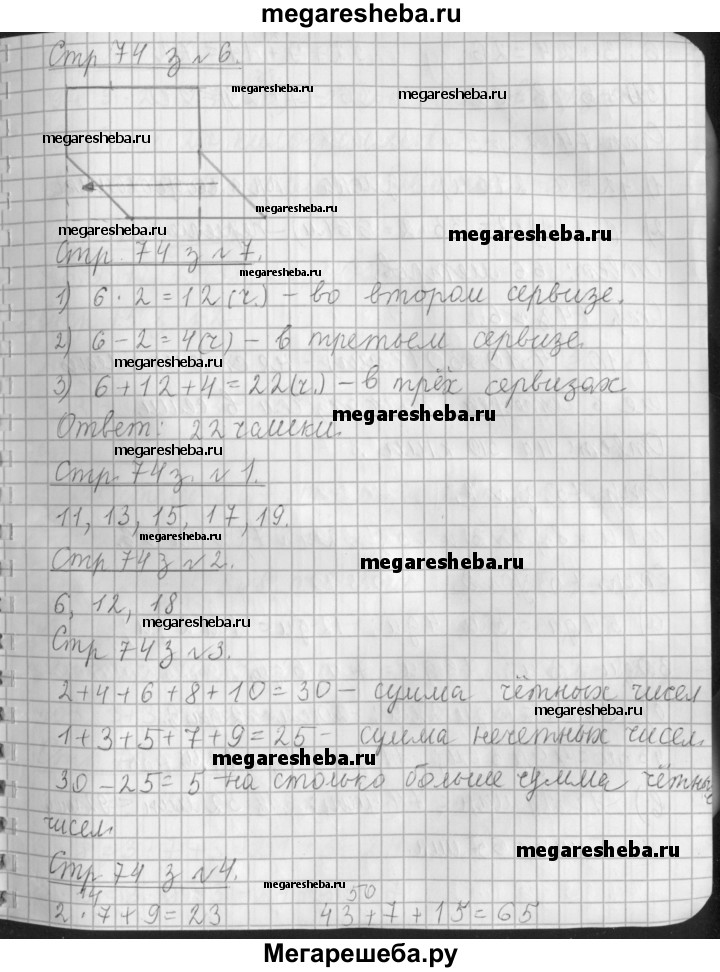 megaresheba.ru
Стр 74 з №6.
megaresheba.ru
megaresheba.ru
megaresheba.ru
megaresheba.ru
megaresheba.ru
megaresheba.ru
Стр. 74 з №7.
megaresheba.ru
1) 6 · 2 = 12 (ч.) – во втором сервизе.
2) 6 – 2 = 4 (ч) – в третьем сервизе.
megaresheba.ru
3) 6 + 12 + 4 = 22 (ч.) – в трёх сервизах
megaresheba.ru
Ответ: 22 чашки.
megaresheba.ru
Стр. 74 з. №1.
11, 13, 15, 17, 19.
megaresheba.ru
Стр 74 з №2.
megaresheba.ru
6, 12, 18
megaresheba.ru
Стр 74 з №3.
2 + 4 + 6 + 8 + 10 = 30 – сумма чётных чисел
megaresheba.ru
1 + 3 + 5 + 7 + 9 = 25 – сумма нечетных чисел.
megaresheba.ru
30 – 25 = 5 – на столько больше сумма чётных
чисел.
megaresheba.ru
Стр 74 з №4.
megaresheba.ru
14 50
2 · 7 + 9 = 23 43 + 7 + 15 = 65
Мегарешеба.ру